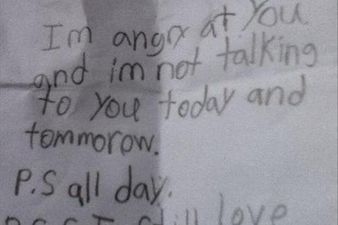 Im angry at you
and im not talking
to you today and
tommorow.
P.S all day.
I still love